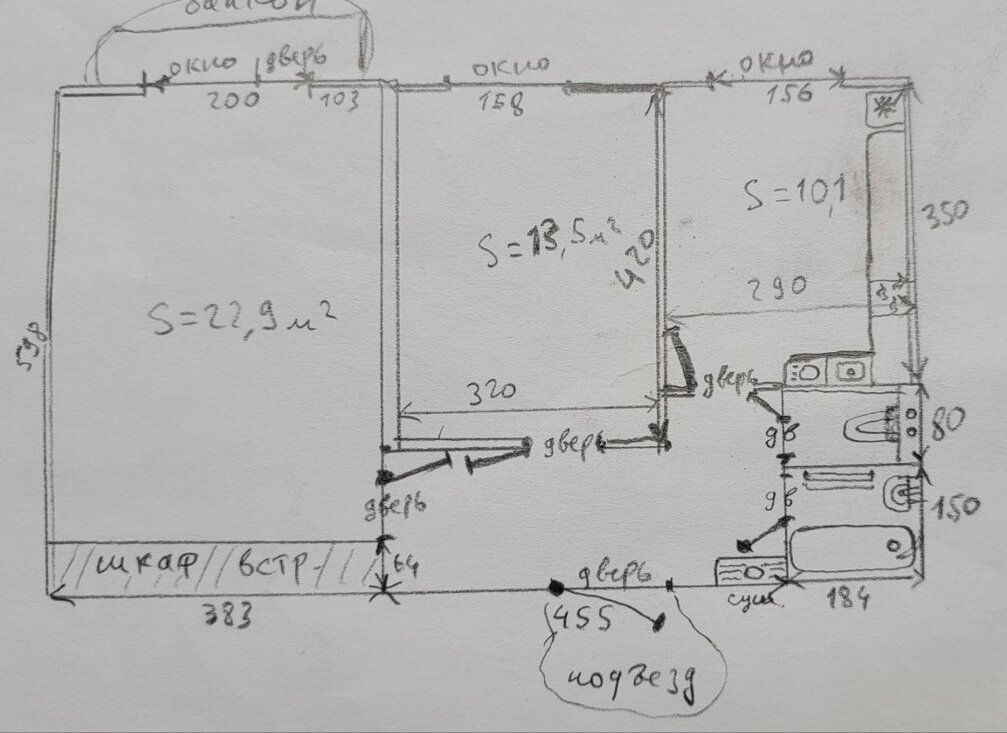 балкон
окно дверь
200 103
окно
158
окно
156
S=22,9 м²
598
S=13,5 м²
420
320
S=10,1
290
350
дверь
дверь
дверь
дв
80
дв
150
шкаф встр.
64
383
дверь
455
подъезд
суш
184